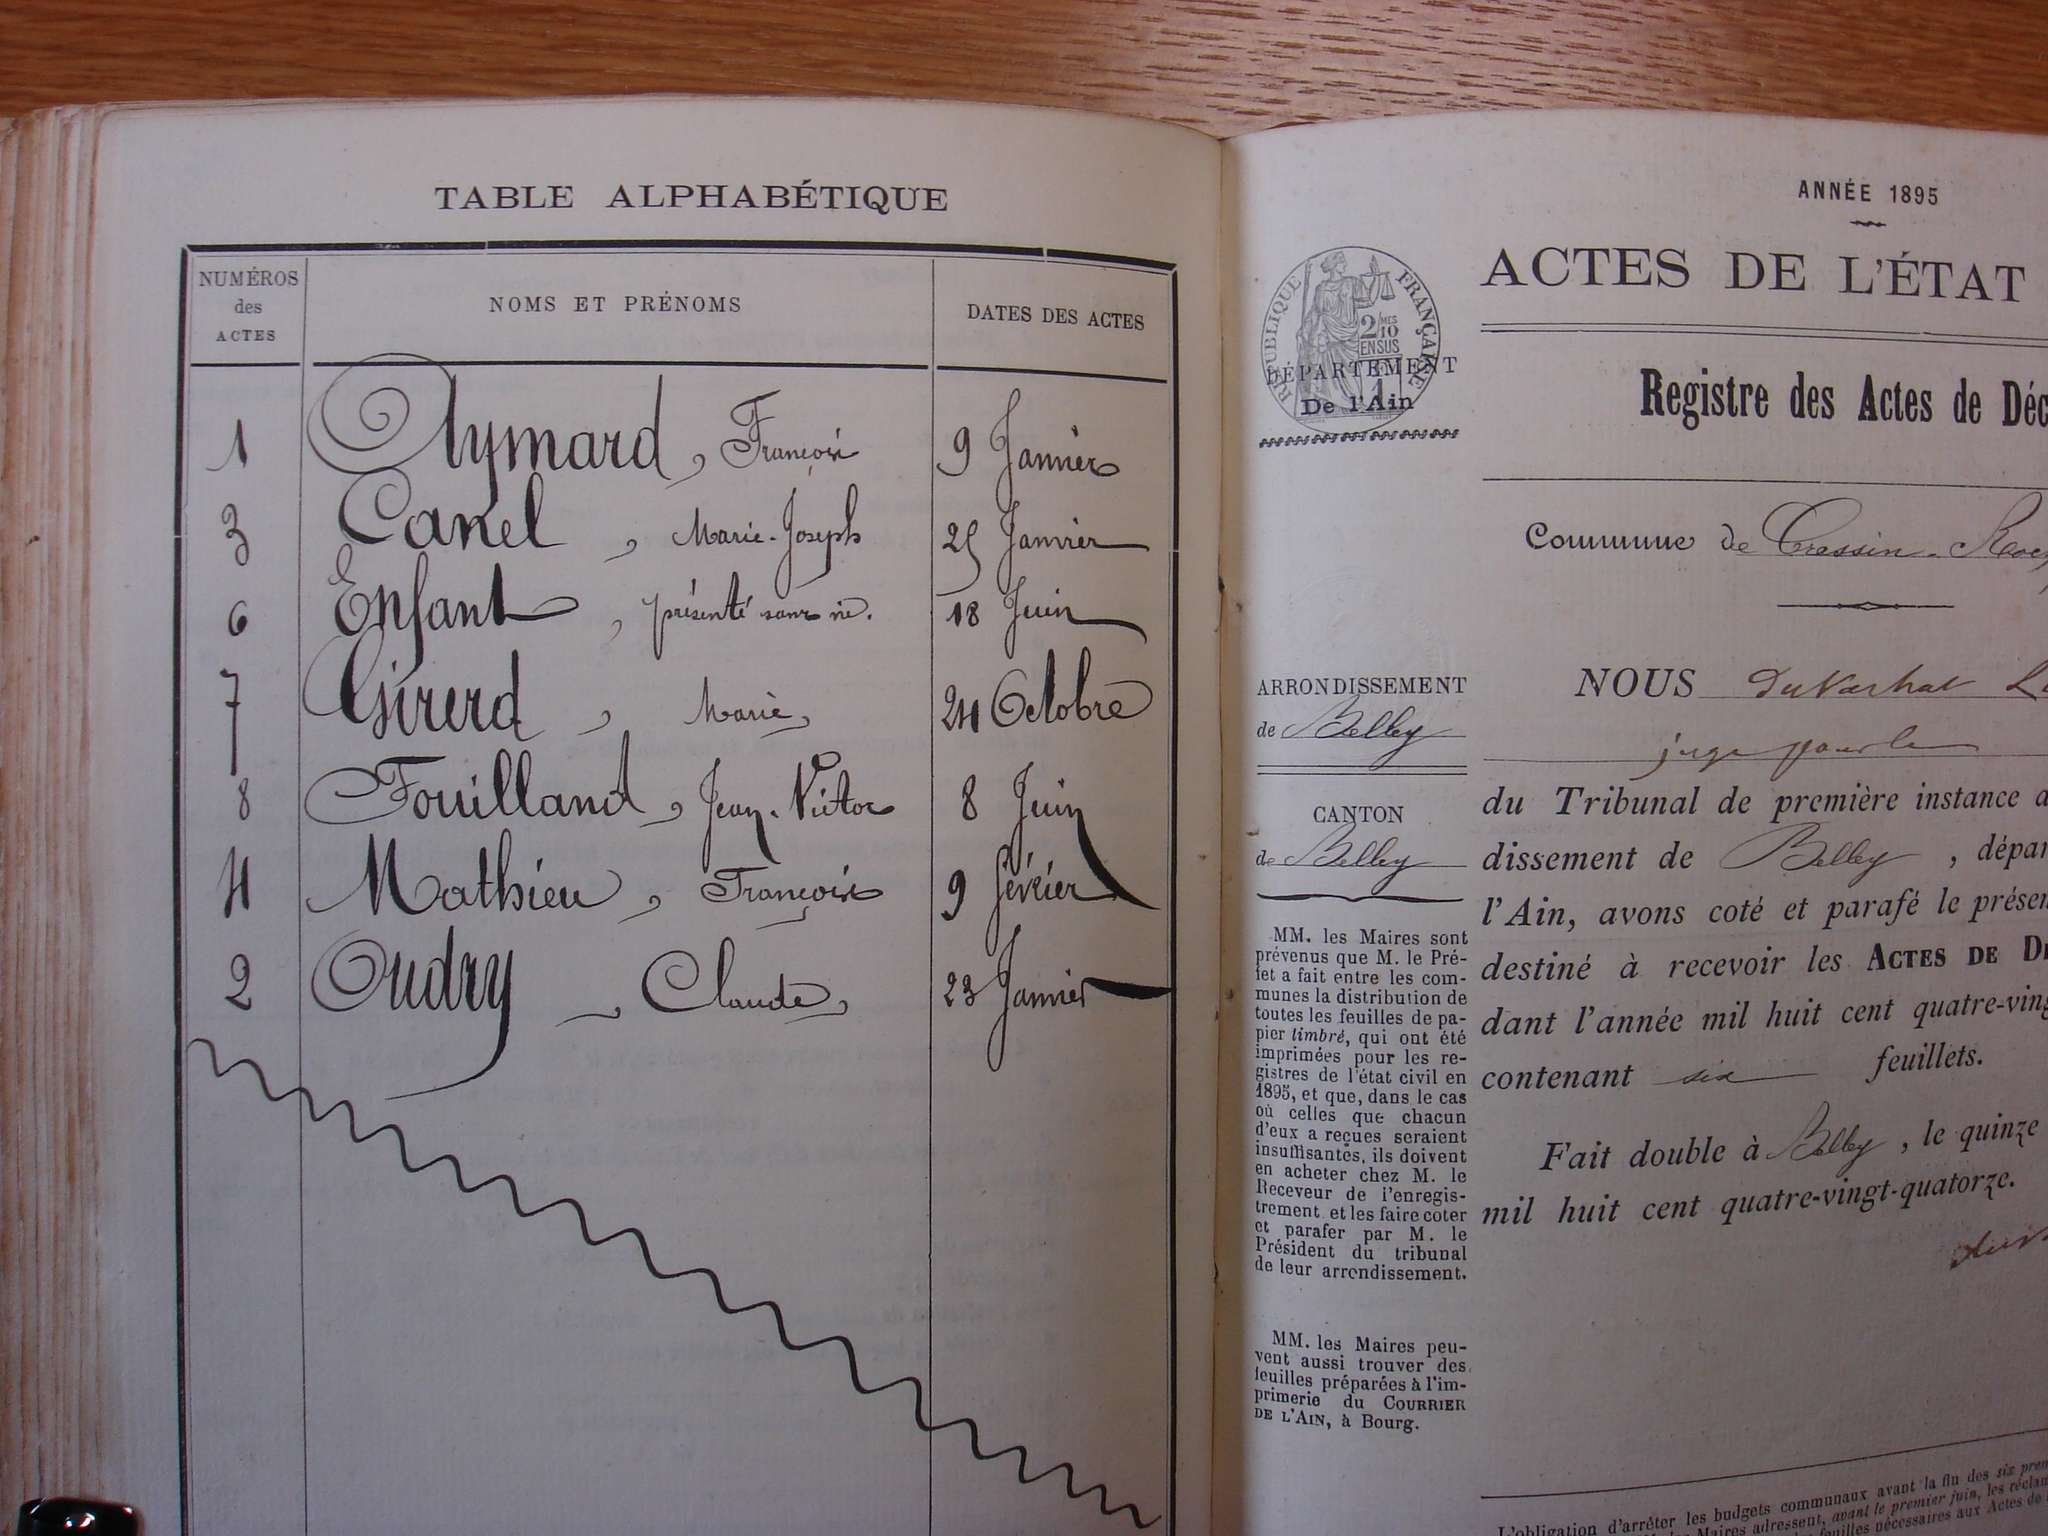 TABLE ALPHABÉTIQUE
NUMÉROS des ACTES
NOMS ET PRÉNOMS
DATES DES ACTES
1 Aymard, François 9 Janvier
3 Canel, Marie-Joseph 25 Janvier
6 Enfant, présenté sans vie. 18 Juin
7 Girerd, Marie, 24 Octobre
8 Fouilland, Jean-Victor 8 Juin
4 Mathieu, François 9 février
2 Oudry, Claude, 23 Janvier
ANNÉE 1895
ACTES DE L'ÉTAT
RÉPUBLIQUE FRANÇAISE
2/10 MES
EN SUS
DÉPARTEMENT
De l'Ain
Registre des Actes de Déc
Commune de Cressin-
ARRONDISSEMENT
de Belley
CANTON
de Belley
MM. les Maires sont
prévenus que M. le Pré-
fet a fait entre les com-
munes la distribution de
toutes les feuilles de pa-
pier timbré, qui ont été
imprimées pour les re-
gistres de l'état civil en
1895, et que, dans le cas
où celles que chacun
d'eux a reçues seraient
insuffisantes, ils doivent
en acheter chez M. le
Receveur de l'enregis-
trement et les faire coter
et parafer par M. le
Président du tribunal
de leur arrondissement.
MM. les Maires peu-
vent aussi trouver des
feuilles préparées à l'im-
primerie du COURRIER
DE L'AIN, à Bourg.
NOUS
juge pour le
du Tribunal de première instance a
dissement de Belley, dépar
l'Ain, avons coté et parafé le présen
destiné à recevoir les ACTES DE D
dant l'année mil huit cent quatre-ving
contenant six feuillets.
Fait double à Belley, le quinze
mil huit cent quatre-vingt-quatorze.
L'obligation d'arrêter les budgets communaux avant la fin des six prem
Maires adressent, avant le premier juin, les réclam
feuilles nécessaires aux Actes de